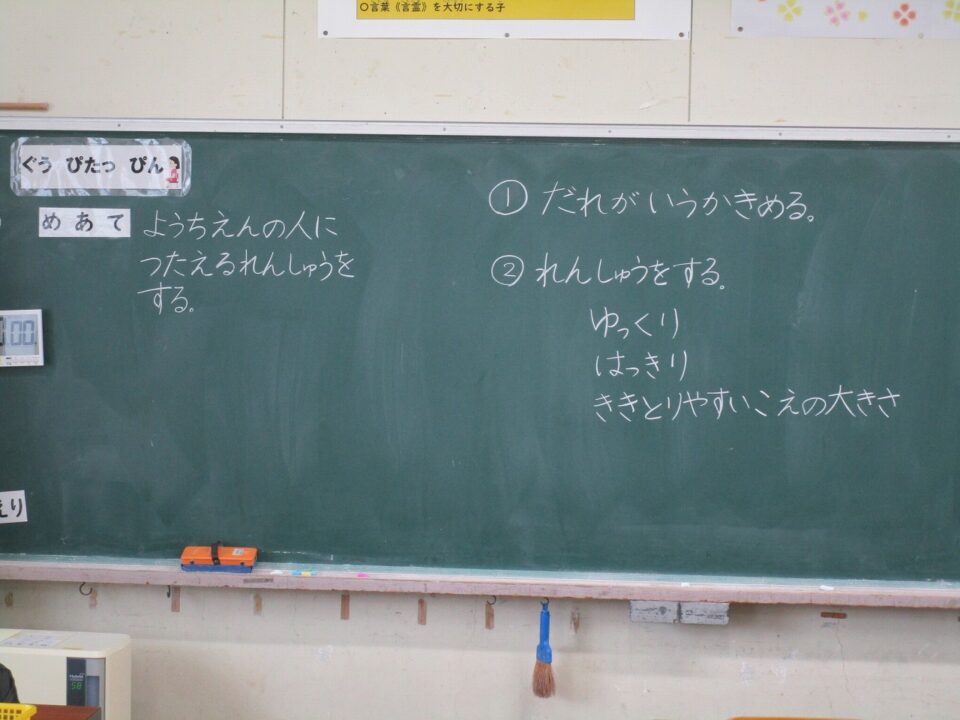 〇言葉《言霊》を大切にする子
ぐう ぴたっ ぴん
めあて
ようちえんの人に
つたえるれんしゅうを
する。
① だれがいうかきめる。
② れんしゅうをする。
ゆっくり
はっきり
ききとりやすいこえの大きさ
:00
えり
Hybrid
58